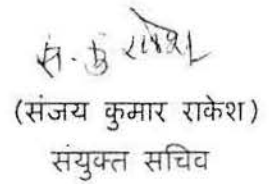 सं. कु राकेश
(संजय कुमार राकेश)
संयुक्त सचिव